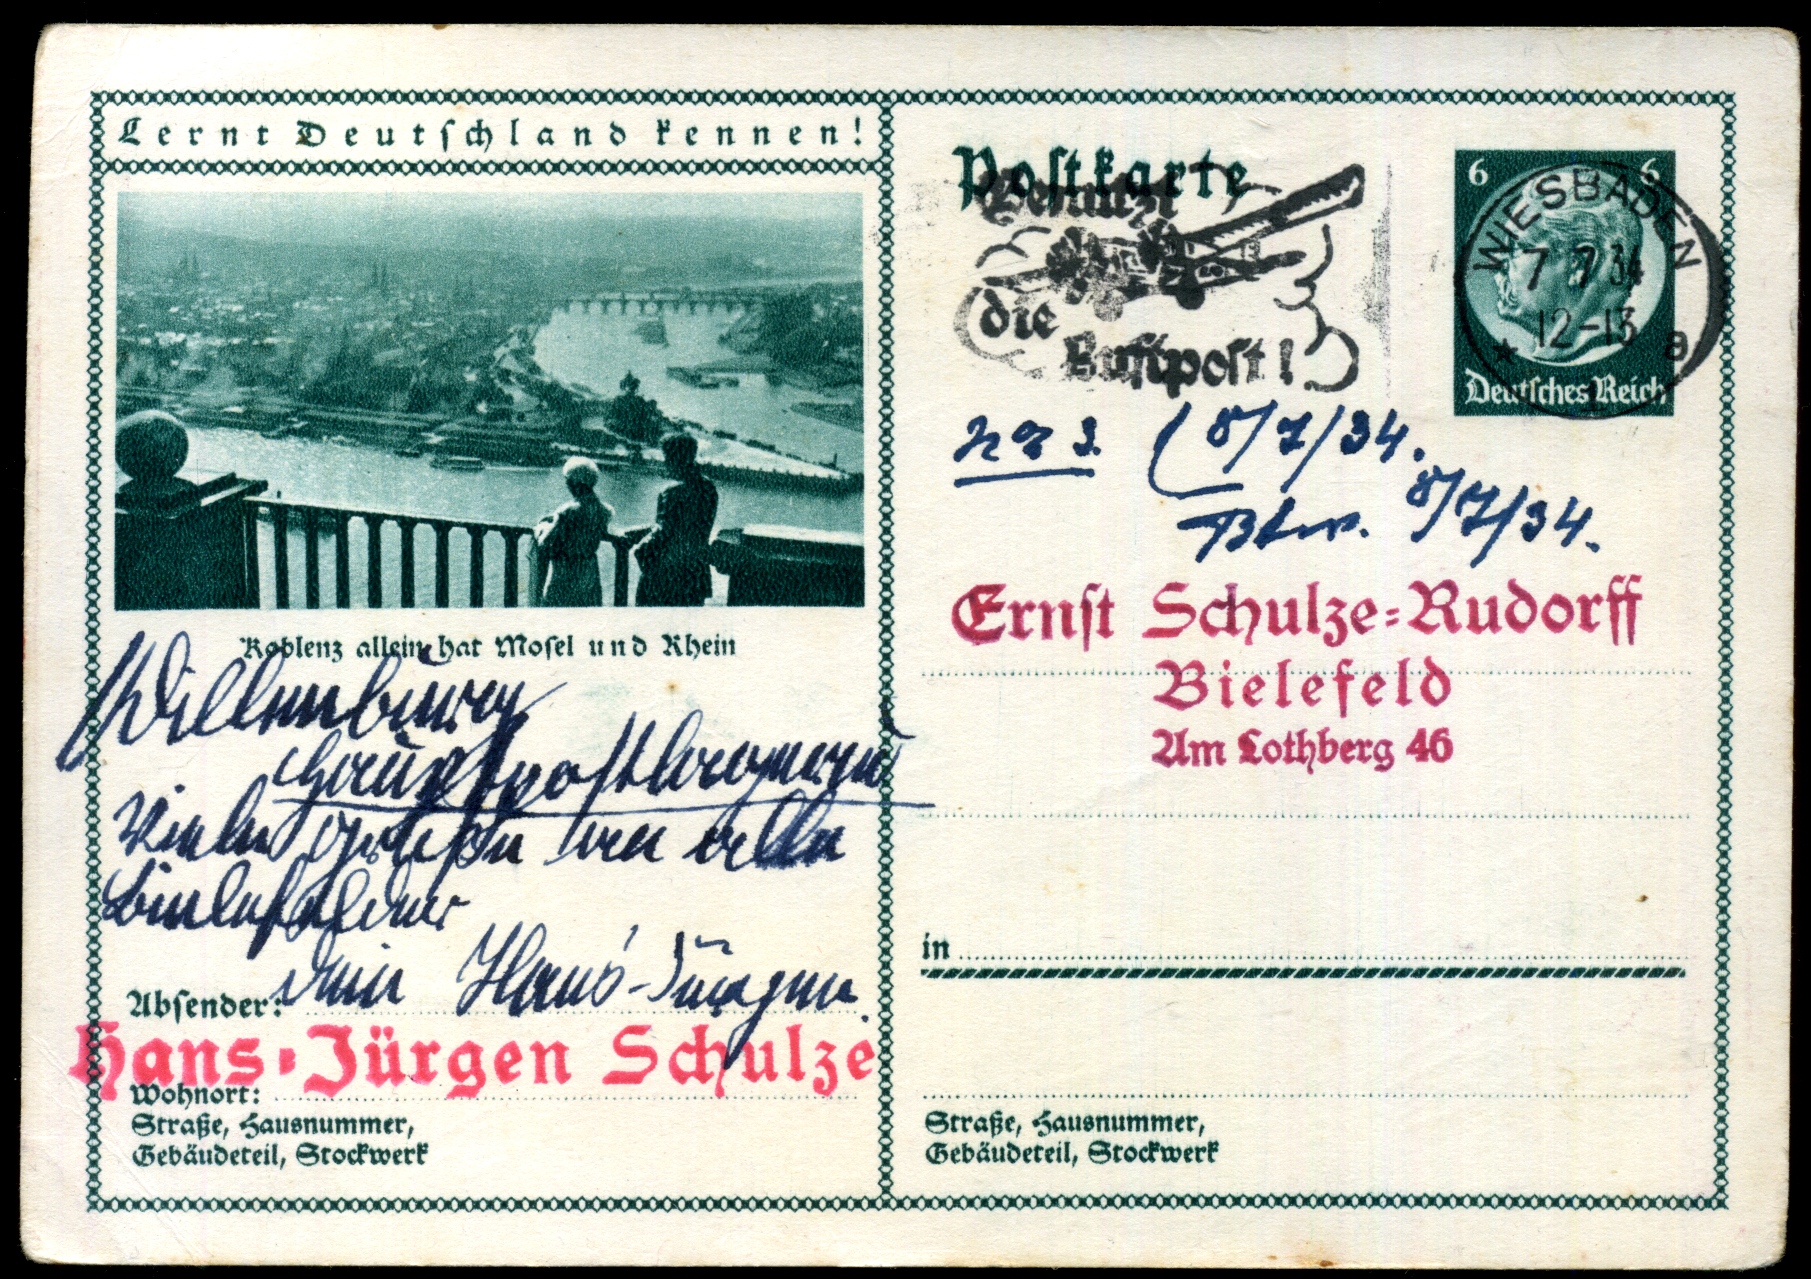 Lernt Deutschland kennen!
Koblenz allein hat Mosel und Rhein
hauptpostlagernd
Viele Grüße an alle
Bielefelder
Dein Hans-Jürgen.
Absender:
Hans-Jürgen Schulze
Wohnort:
Straße, Hausnummer,
Gebäudeteil, Stockwerk
Postkarte
Benutzt
die
Luftpost!
6 6
WIESBADEN
7 7 34
12-13
* a
Deutsches Reich
8/7/34.
8/7/34.
Ernst Schulze-Rudorff
Bielefeld
Am Lothberg 46
in
Straße, Hausnummer,
Gebäudeteil, Stockwerk